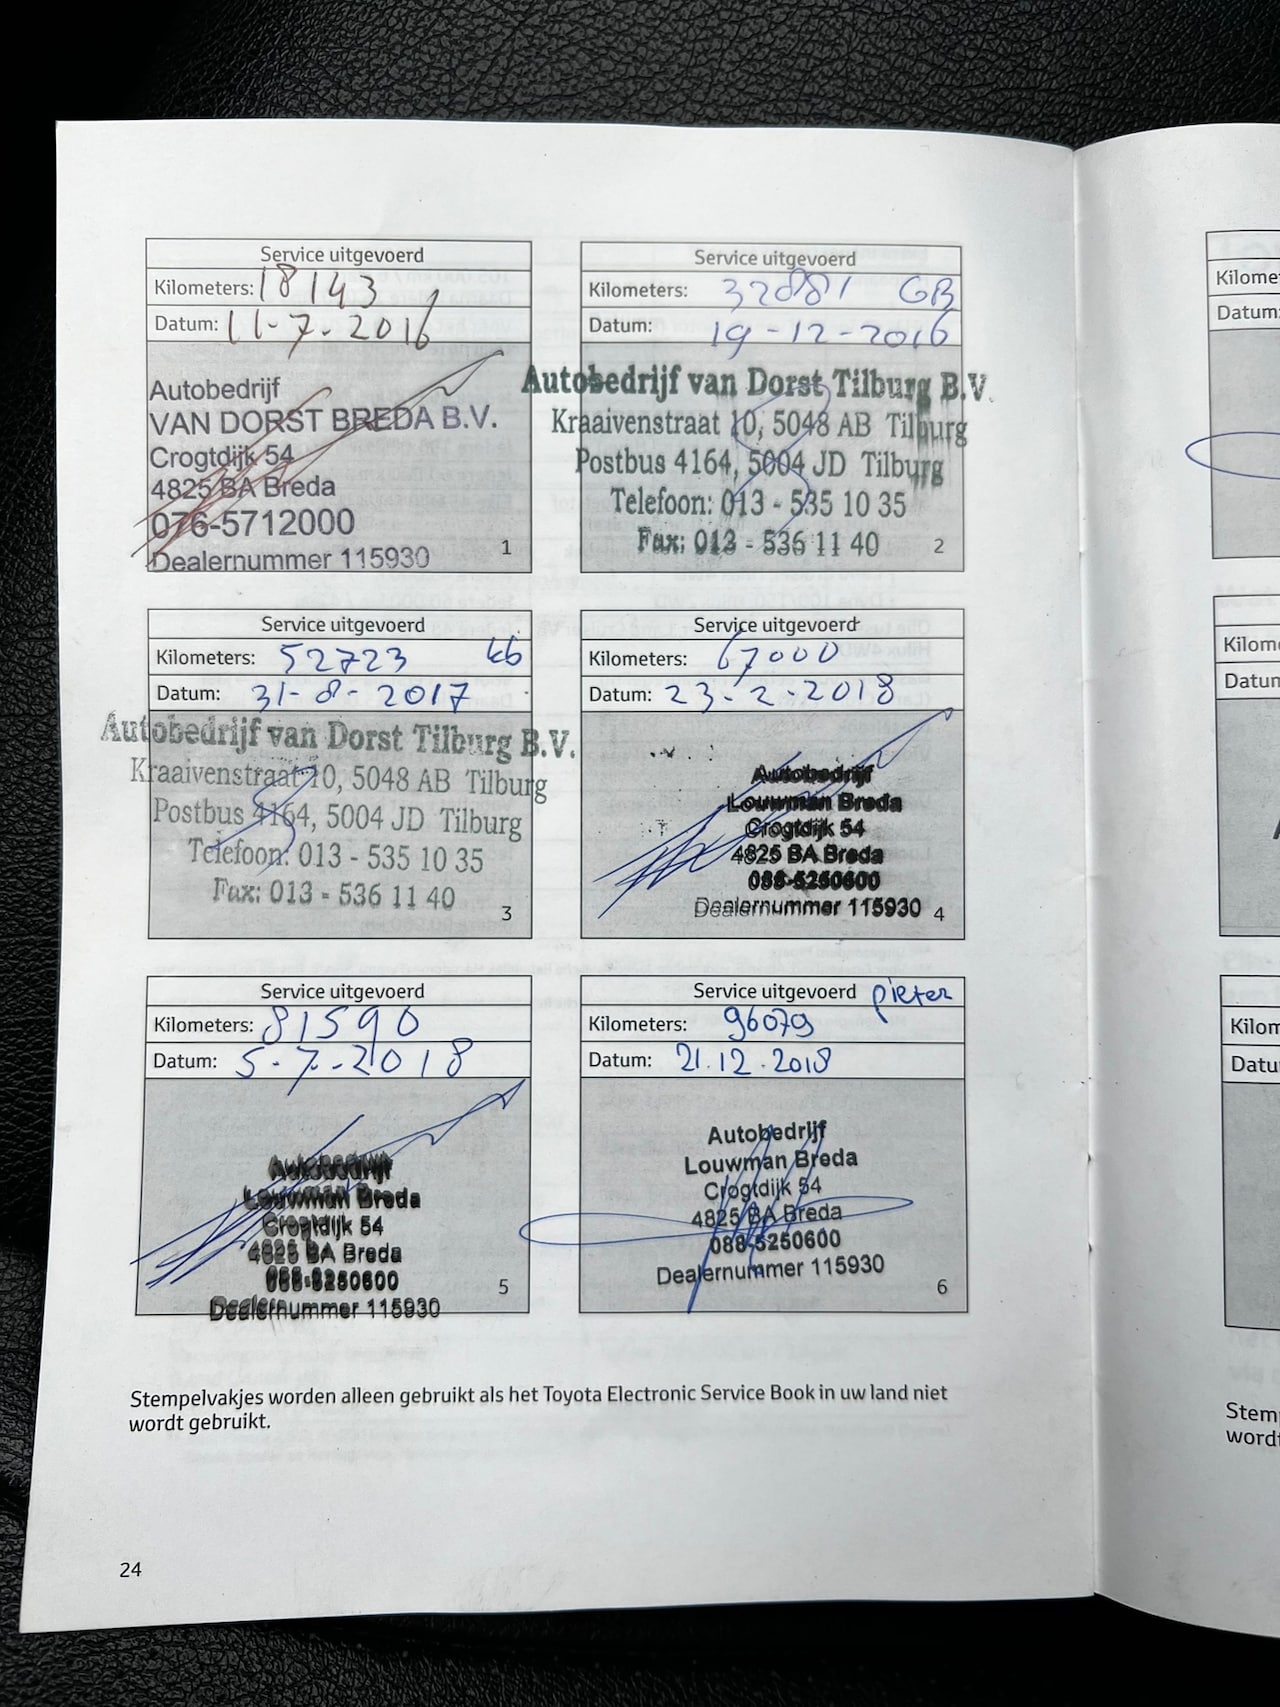 Service uitgevoerd
Kilometers: 18143
Datum: 11-7-2016
Autobedrijf
VAN DORST BREDA B.V.
Crogtdijk 54
4825 BA Breda
076-5712000
Dealernummer 115930
1
Service uitgevoerd
Kilometers: 32881 GB
Datum: 19-12-2016
Autobedrijf van Dorst Tilburg B.V.
Kraaivenstraat 10, 5048 AB Tilburg
Postbus 4164, 5004 JD Tilburg
Telefoon: 013 - 535 10 35
Fax: 013 - 536 11 40
2
Service uitgevoerd
Kilometers: 52723 kb
Datum: 31-8-2017
Autobedrijf van Dorst Tilburg B.V.
Kraaivenstraat 10, 5048 AB Tilburg
Postbus 4164, 5004 JD Tilburg
Telefoon: 013 - 535 10 35
Fax: 013 - 536 11 40
3
Service uitgevoerd
Kilometers: 67000
Datum: 23-2-2018
Autobedrijf
Louwman Breda
Crogtdijk 54
4825 BA Breda
088-5250600
Dealernummer 115930
4
Service uitgevoerd
Kilometers: 81590
Datum: 5-7-2018
Autobedrijf
Louwman Breda
Crogtdijk 54
4825 BA Breda
088-5250600
Dealernummer 115930
5
Service uitgevoerd pieter
Kilometers: 96079
Datum: 21.12.2018
Autobedrijf
Louwman Breda
Crogtdijk 54
4825 BA Breda
088-5250600
Dealernummer 115930
6
Stempelvakjes worden alleen gebruikt als het Toyota Electronic Service Book in uw land niet
wordt gebruikt.
24
Kilome
Datum:
Kilom
Datun
Kilon
Datu
Stem
word